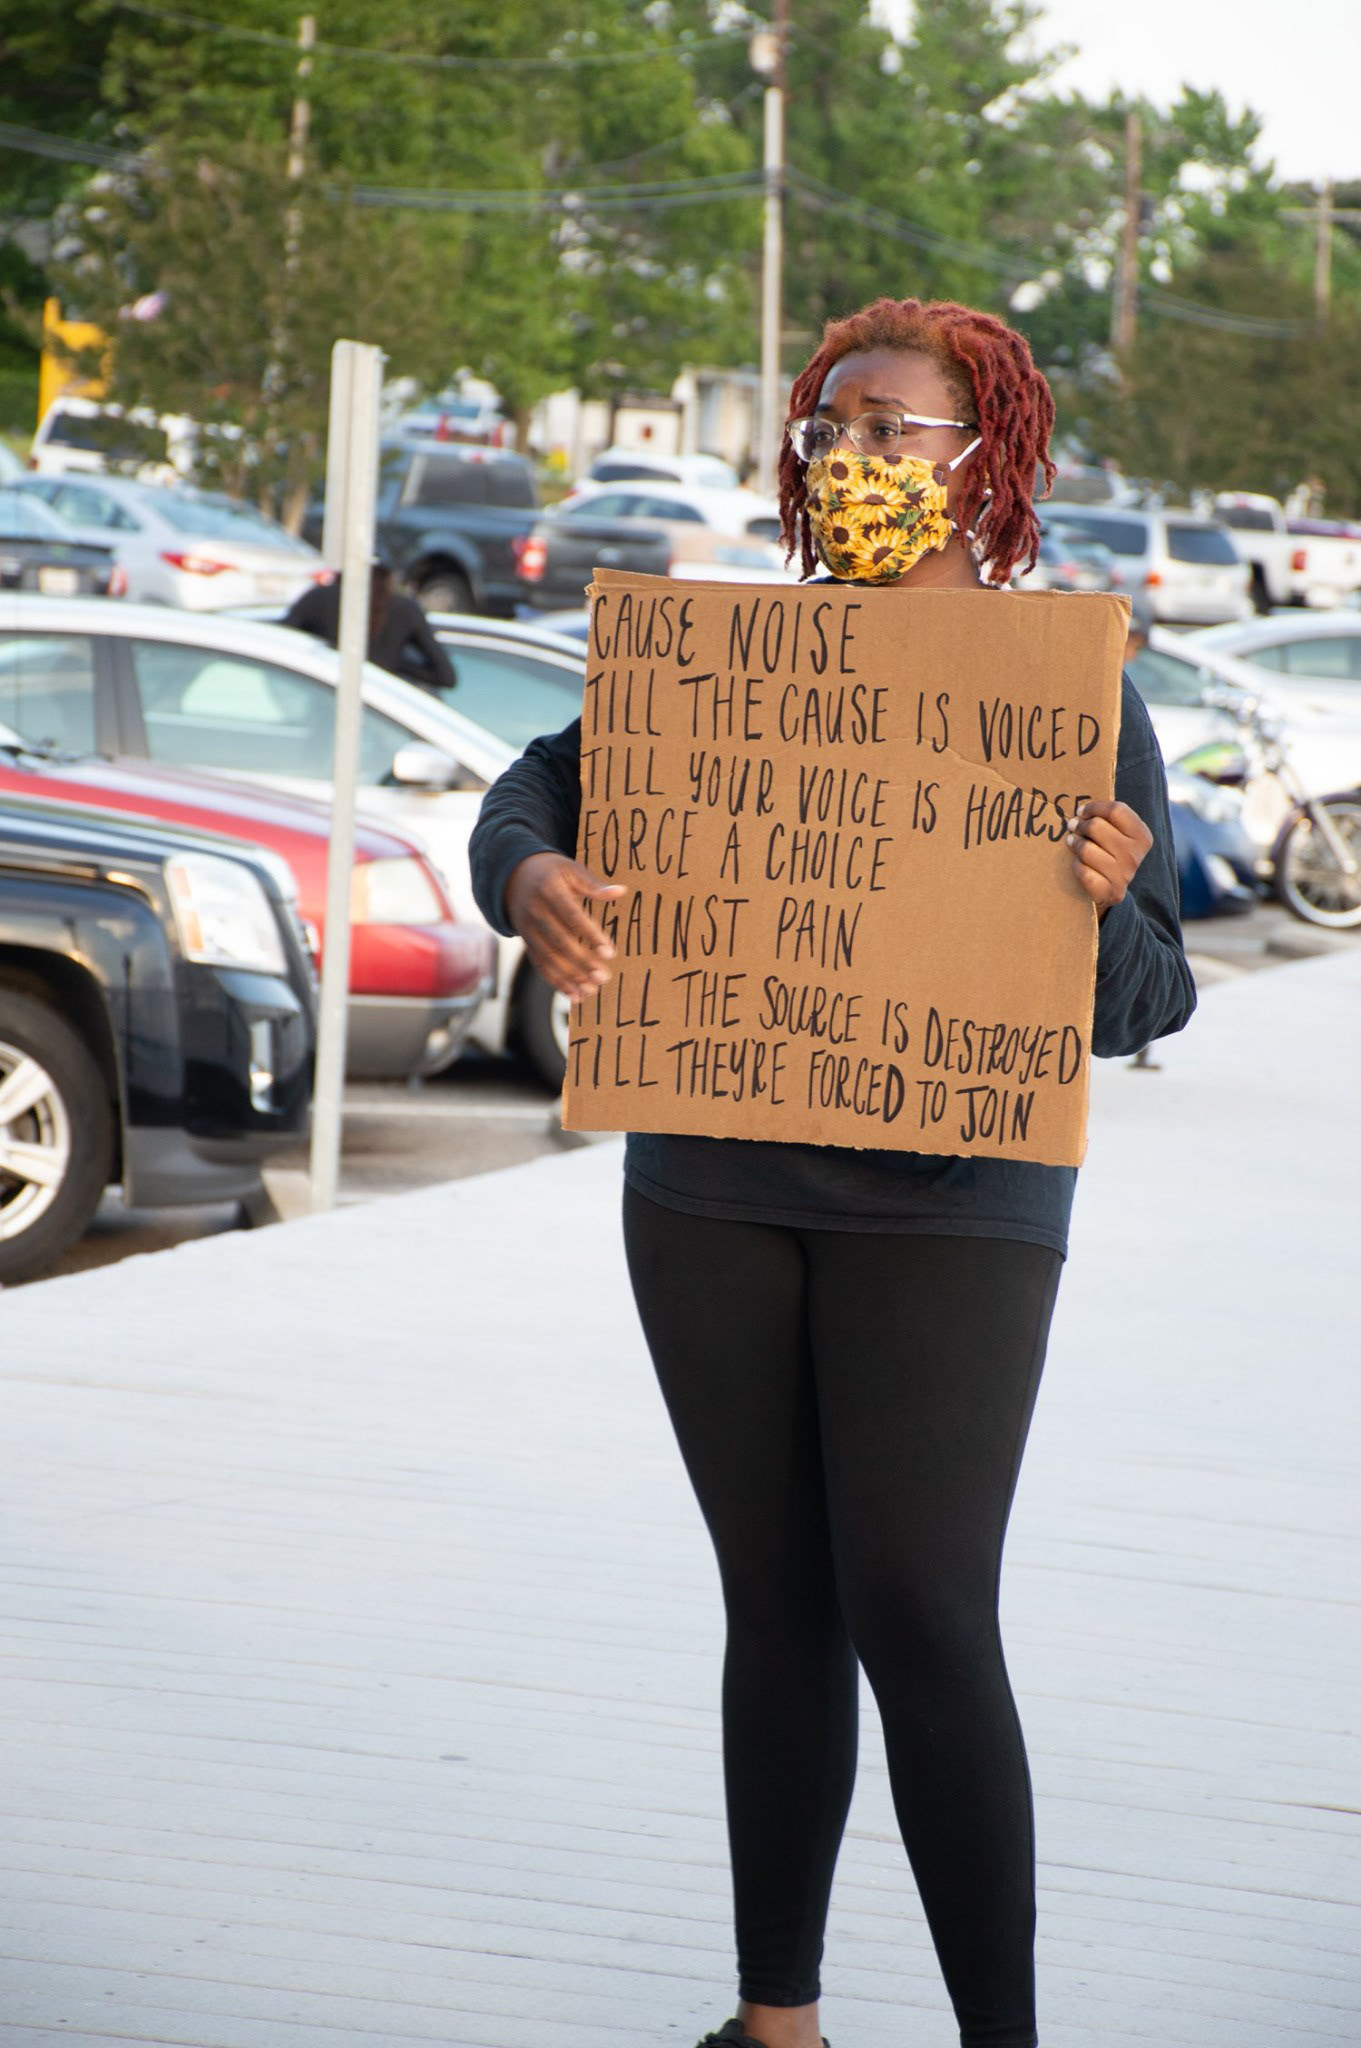 CAUSE NOISE
TILL THE CAUSE IS VOICED
TILL YOUR VOICE IS HOARSE
FORCE A CHOICE
AGAINST PAIN
TILL THE SOURCE IS DESTROYED
TILL THEY'RE FORCED TO JOIN